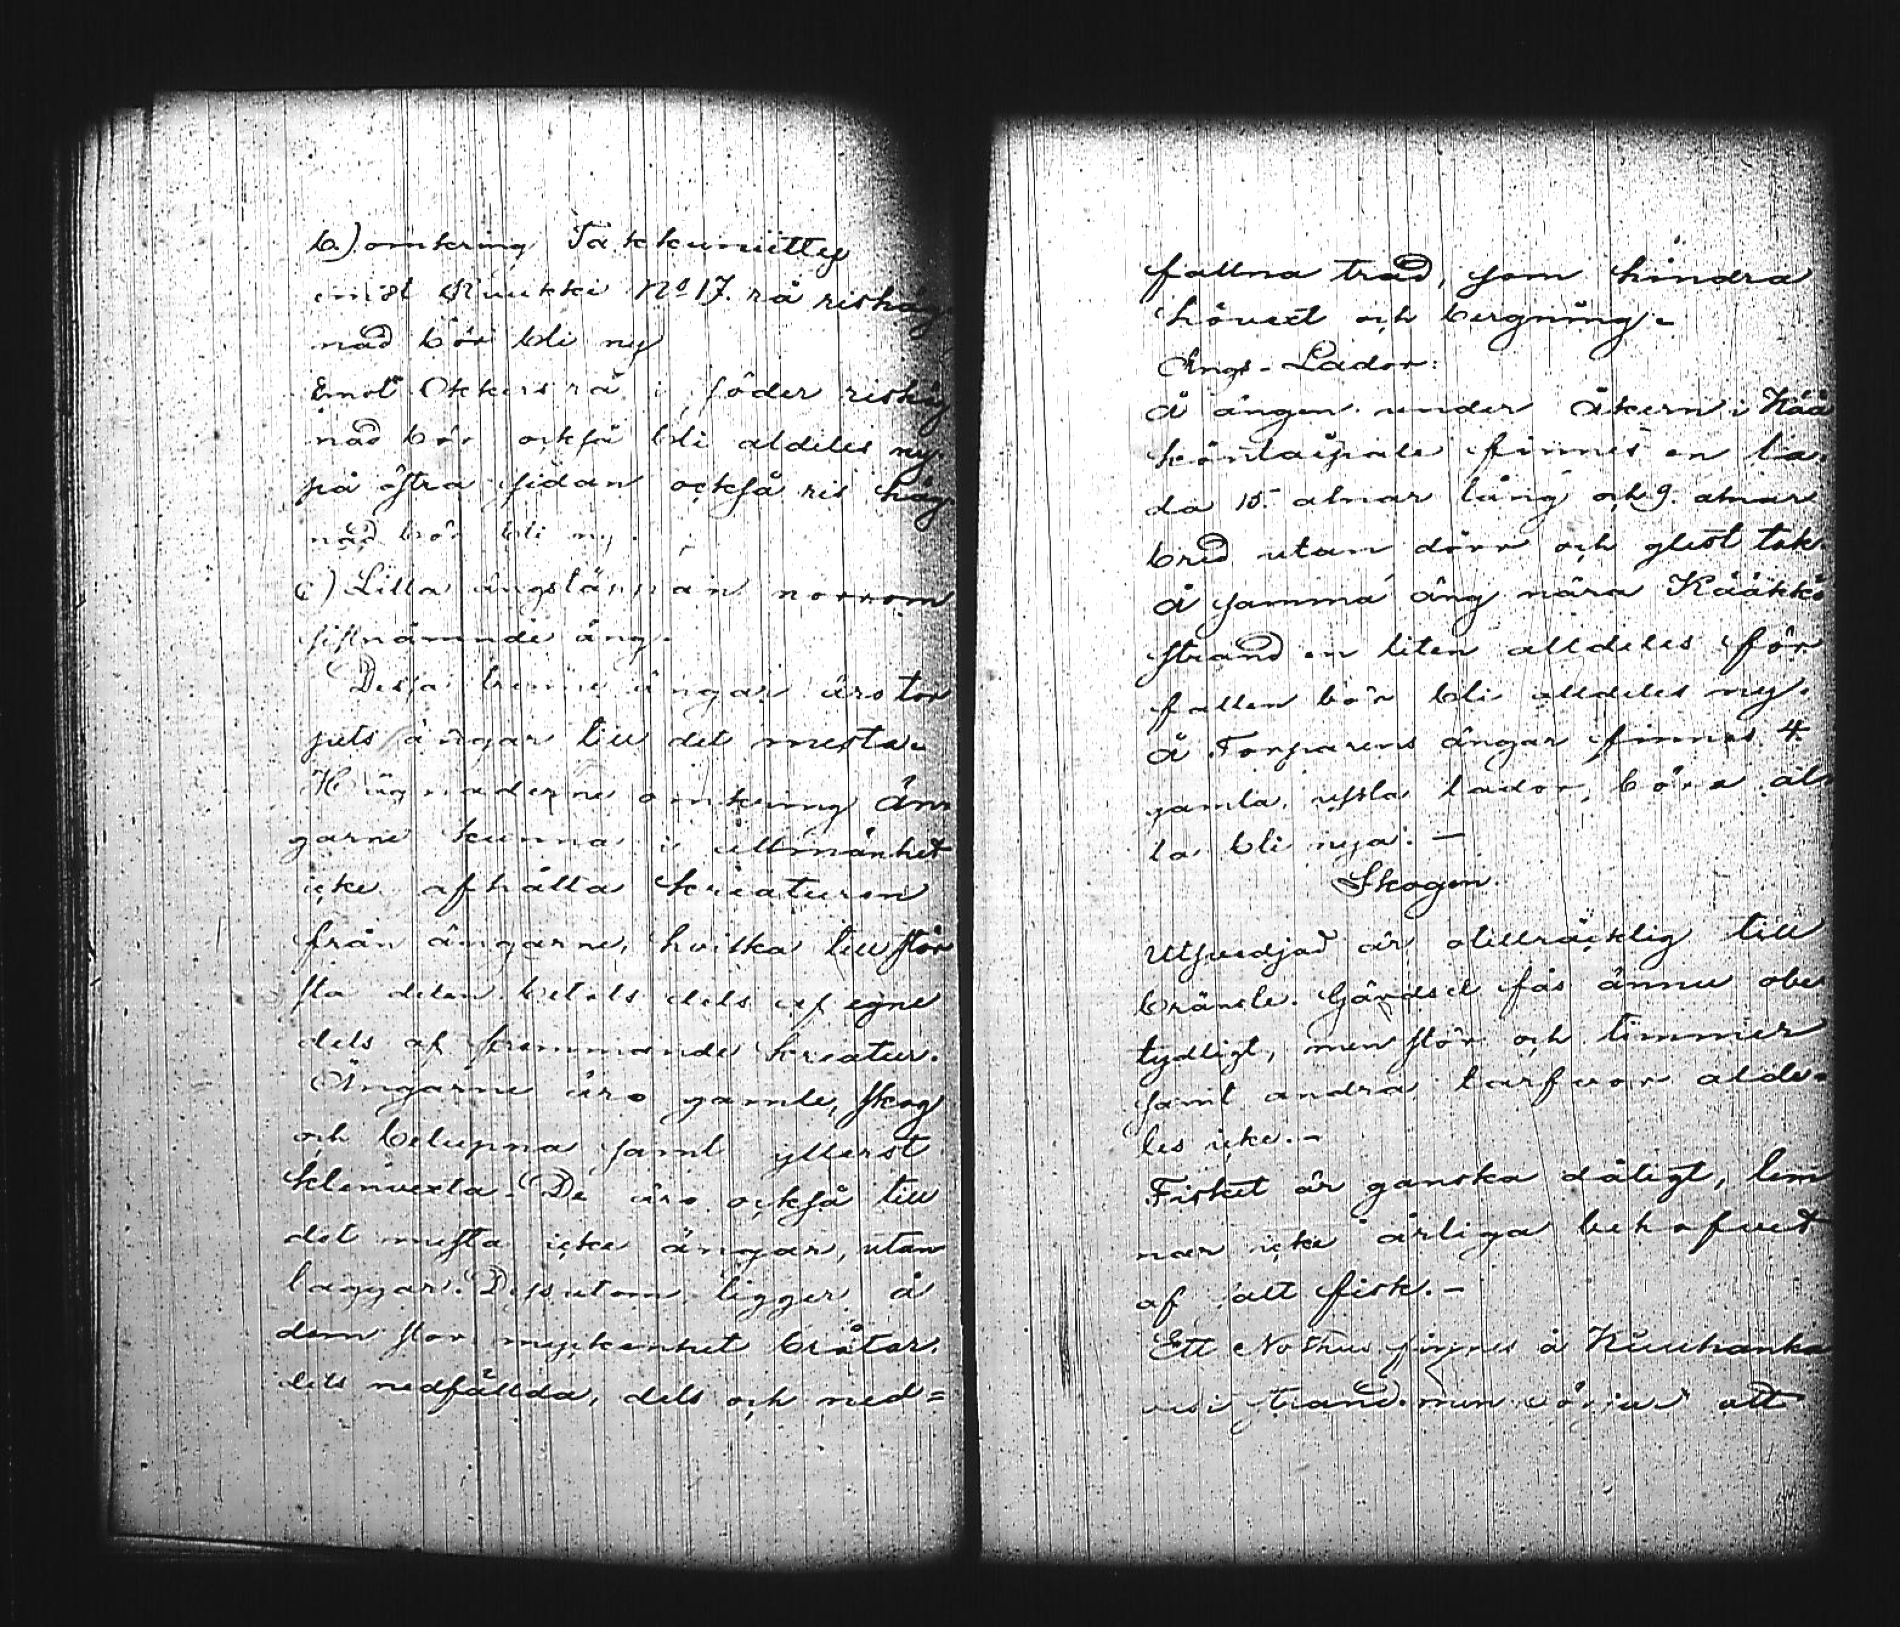 b.) omkring Takkuniitty
emot Ruukki No 17. rå rishäg
nad bör bli ny
Emot Okkers rå i söder rishäg
nad bör också bli aldeles ny.
på östra sidan också ris häg
nad bör bli ny.
c) Lilla ängstäppan norrom
sistnämnde äng.
Dessa trenne ängar äro tor
pets ängar till det mesta.
Hägnaderne omkring än
garne kunna i allmänhet
icke afhålla kreaturen
från ängarne, hvilka till stör
sta delen betats dels af egne
dels af fremmande kreatur.
Ängarne äro gamle, skog
och belupna samt ytterst
klenvexta. De äro också till
det mesta icke ängar, utan
laggar. Dessutom ligger å
dem stor myckenhet bråtar.
dels nedfällda, dels och ned=
fallna träd, som hindra
hövext och bergning.
Ängs-Lador:
Å ängen under Åkern i Kää
köntaipale finnes en la
da 15 alnar lång och 9. alnar
bred utan dörr och glest tak.
Å samma äng nära Kääkkö
strand en liten alldeles för
fallen bör bli alldeles ny.
Å Torparens ängar finnes 4.
gamla, usla lador, böra al
la bli nya: —
Skogen.
Utsvedjad är otillräcklig till
bränsle. Gärdsel fås ännu obe
tydligt, men stör och timmer
samt andra tarfvor alde-
les icke. -
Fisket är ganska dåligt, lem
nar icke årliga behofvet
af salt fisk. -
Ett Nothus finnes å Kuuhanka
vesi strand. men börjar att